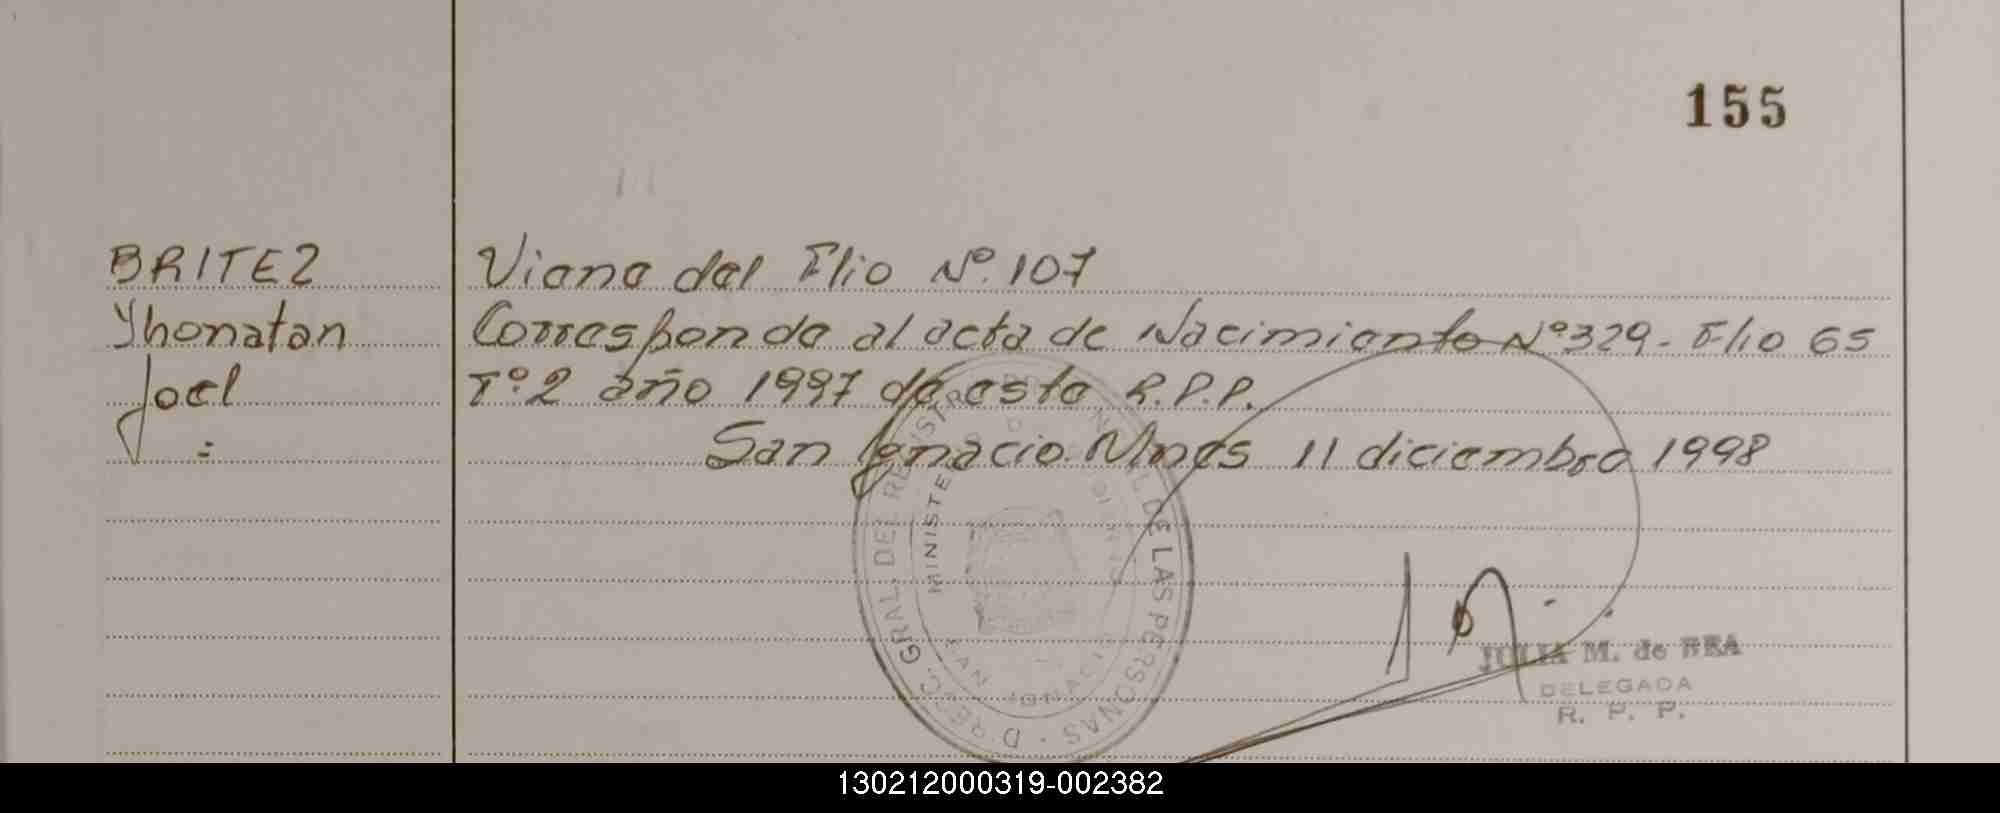 155
BRITEZ
Yhonatan
Joel
=
Viene del Flio Nº. 107
Corresponde al acta de Nacimiento Nº 329 - Flio 65
Tº. 2 año 1997 de este R.P.P.
San Ignacio Mnes 11 diciembre 1998
DIREC. GRAL. DEL REGISTRO DE LAS PERSONAS
MINISTE
SAN IGNACIO
JULIA M. de BEA
DELEGADA
R. P. P.
130212000319-002382